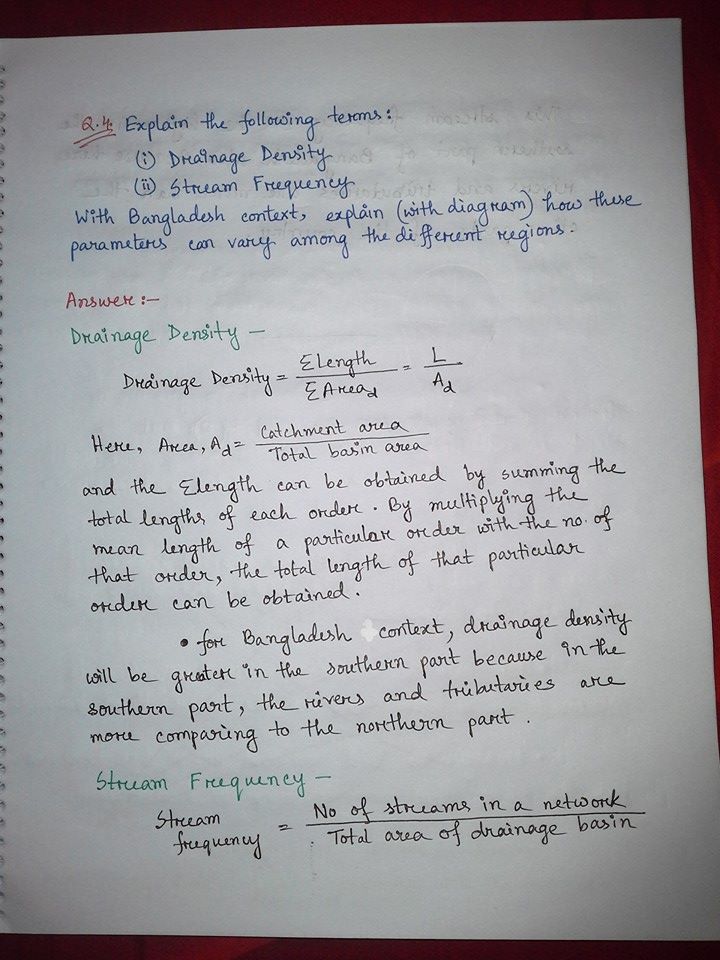 Q.4: Explain the following terms:
(i) Drainage Density
(ii) Stream Frequency
With Bangladesh context, explain (with diagram) how these
parameters can vary among the different regions.
Answer :-
Drainage Density -
Drainage Density = ΣLength / ΣArea_d = L / A_d
Here, Area, A_d = Catchment area / Total basin area
and the Σlength can be obtained by summing the
total lengths of each order. By multiplying the
mean length of a particular order with the no. of
that order, the total length of that particular
order can be obtained.
• for Bangladesh context, drainage density
will be greater in the southern part because in the
southern part, the rivers and tributaries are
more comparing to the northern part.
Stream Frequency -
Stream frequency = No of streams in a network / Total area of drainage basin